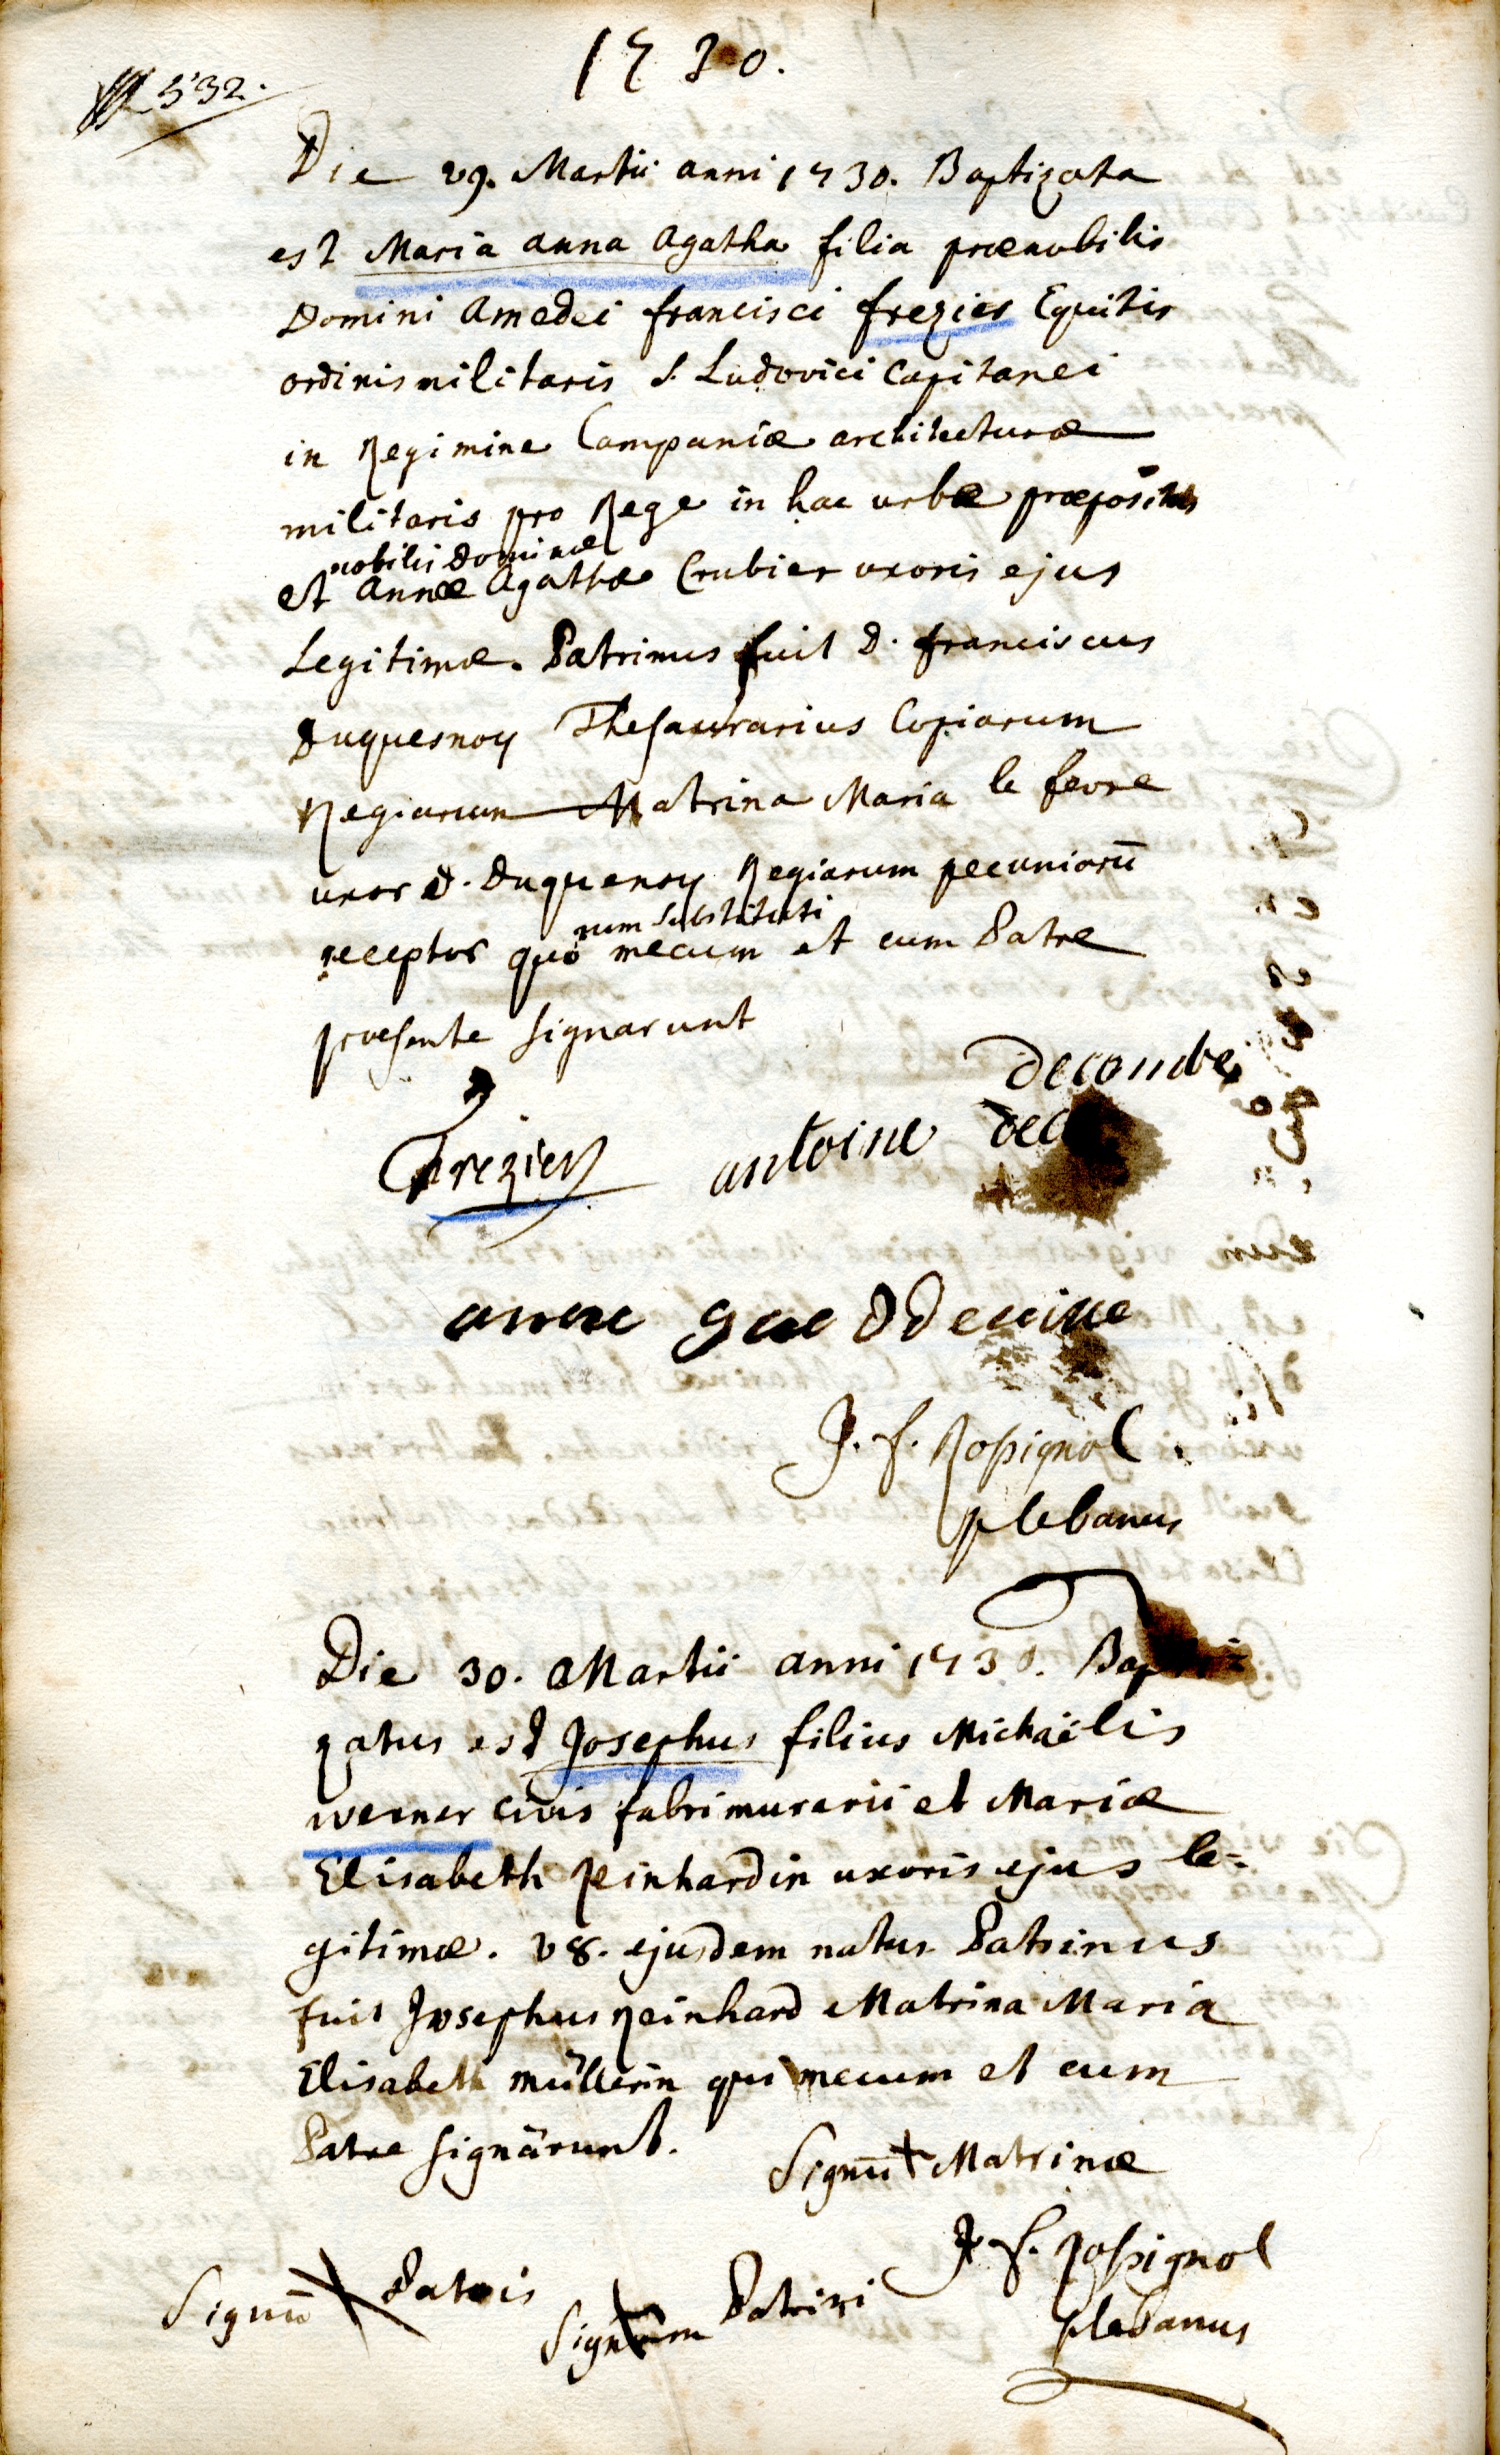 1730.
532.
Die 29. Martii anni 1730. Baptizata
est Maria anna Agatha filia prænobilis
Domini Amedei francisci frezier Equitis
ordinis militaris S. Ludovici Capitanei
in Regimine Campaniæ architecturæ
militaris pro Rege in hac urbe præpositus
nobilis Dominæ
et Annæ Agathæ Crubier uxoris ejus
Legitimæ. Patrinus fuit D. franciscus
Duquesnoy Thesaurarius Copiarum
Regiarum Matrina Maria le fevre
uxor D. Duquenoy Regiarum pecuniarū
receptor quorum substituti mecum et cum Patre
præsente signarunt
Decombe
Frezier antoine
anne
J. f. Rossignol
plebanus
Die 30. Martii anni 1730. Bapti
zatus est Josephus filius Michaëlis
werner civis fabri murarii et Mariæ
Elisabeth Reinhardin uxoris ejus le=
gitimæ. 28. ejusdem natus Patrinus
fuit Josephus Reinhard Matrina Maria
Elisabeth müllerin qui mecum et cum
Patre signârunt.
Signū + Matrinæ
J. f. Rossignol
plebanus
Signū + Patris
Signum Patrini